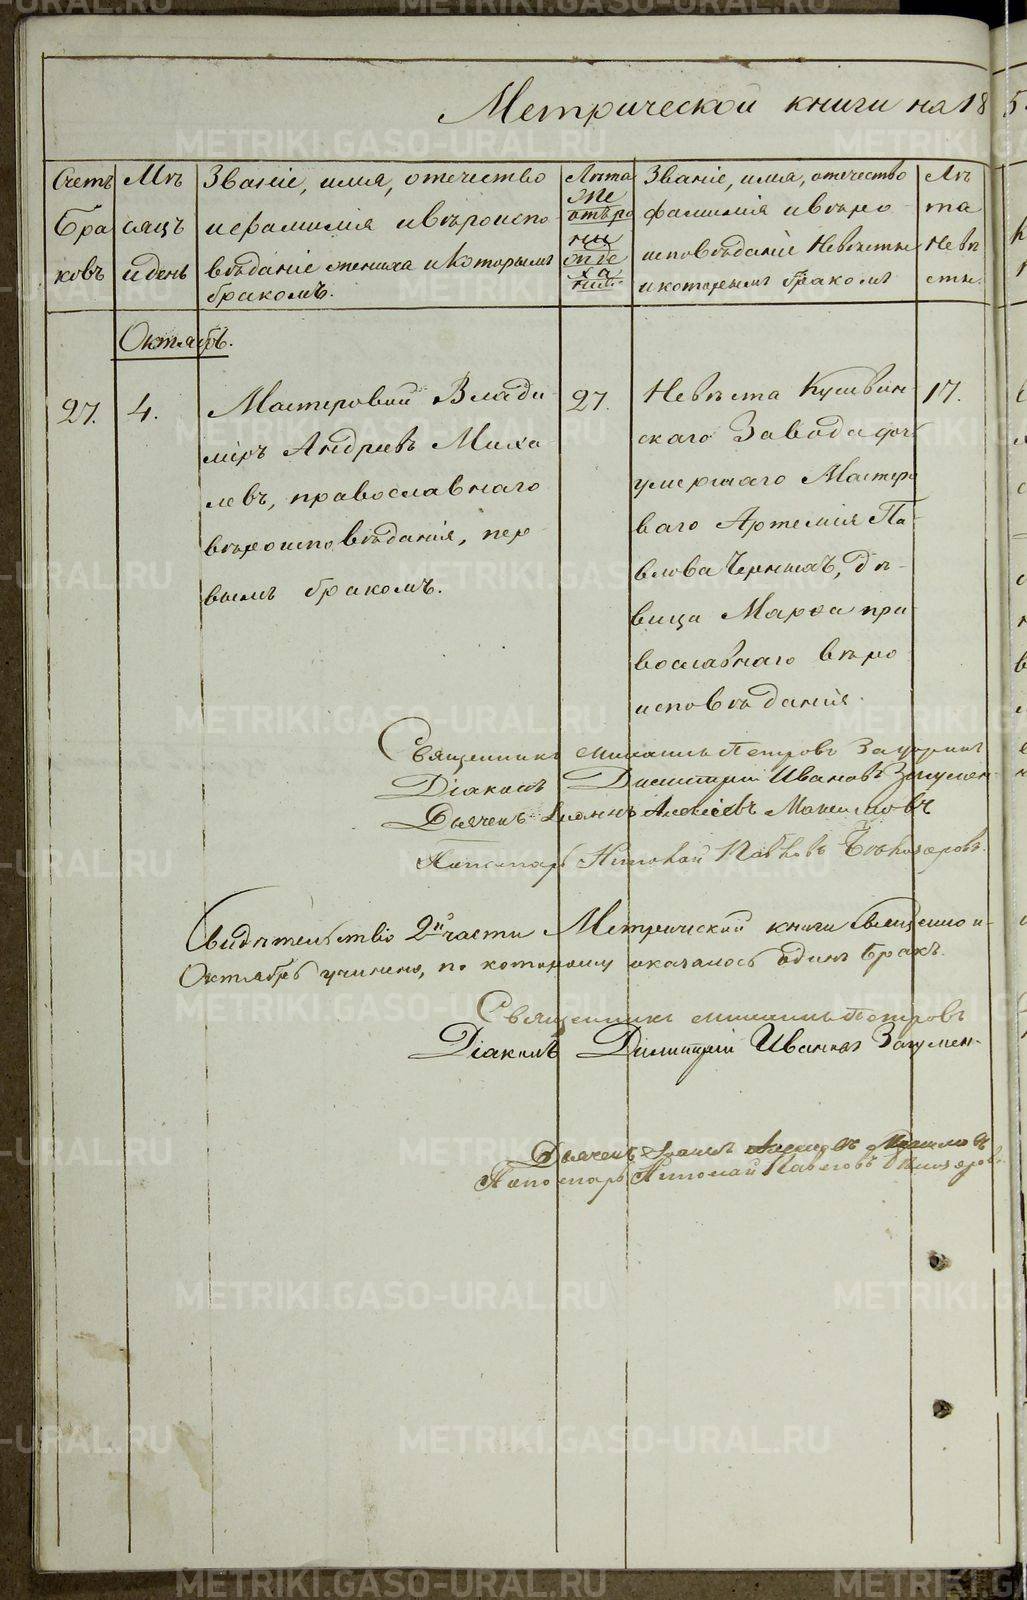 Метрической книги на 18 5
Счетъ
Бра
ковъ
Мѣ
сяцъ
и день
Званіе, имя, отечество
и фамилія и вѣроиспо
вѣданіе жениха и которымъ
бракомъ.
Лѣта
же
Званіе, имя, отечество
фамилія и вѣро
исповѣданіе Невѣсты
и которымъ бракомъ
Лѣ
та
Невѣ
сты.
Октябрь.
27.
4.
Мастеровой Влади
міръ Андреевъ Миха
левъ, православнаго
вѣроисповѣданія, пер
вымъ бракомъ.
27.
Невѣста Кушвин
скаго Завода дочь
умершаго Мастеро
ваго Артемія Па-
влова Черныхъ, дѣ-
вица Марѳа пра
вославнаго вѣро
исповѣданія.
17.
Священникъ Михаилъ Петровъ
Діаконъ Димитрій Ивановъ
Дьячекъ Іоаннъ Алексіевъ
Пономарь Николай Павловъ
Свидѣтельство 2й части Метрической книги
Октябрь учинено, по которому оказалось одинъ бракъ.
Священникъ Михаилъ Петровъ
Діаконъ Димитрій Ивановъ
Дьячекъ Іоаннъ
Пономарь Николай Павловъ
METRIKI.GASO-URAL.RU